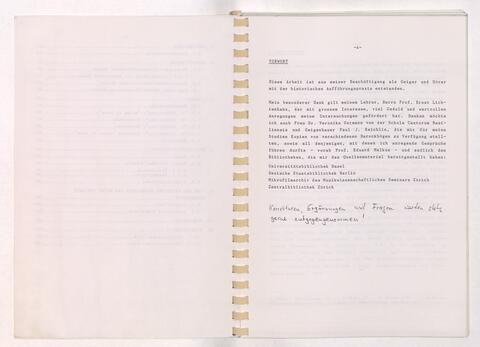 -4-
VORWORT
Diese Arbeit ist aus meiner Beschäftigung als Geiger und Hörer
mit der historischen Aufführungspraxis entstanden.
Mein besonderer Dank gilt meinem Lehrer, Herrn Prof. Ernst Lich-
tenhahn, der mit grossem Interesse, viel Geduld und wertvollen
Anregungen meine Untersuchungen gefördert hat. Danken möchte
ich auch Frau Dr. Veronika Gutmann von der Schola Cantorum Basi-
liensis und Geigenbauer Paul J. Reichlin, die mir für meine
Studien Kopien von verschiedenen Barockbögen zu Verfügung stell-
ten, sowie all denjenigen, mit denen ich anregende Gespräche
führen durfte - vorab Prof. Eduard Melkus - und endlich den
Bibliotheken, die mir das Quellenmaterial bereitgestellt haben:
Universitätsbibliothek Basel
Deutsche Staatsbibliothek Berlin
Mikrofilmarchiv des Musikwissenschaftlichen Seminars Zürich
Zentralbibliothek Zürich
Korrekturen, Ergänzungen und Fragen werden stets
gerne entgegengenommen!